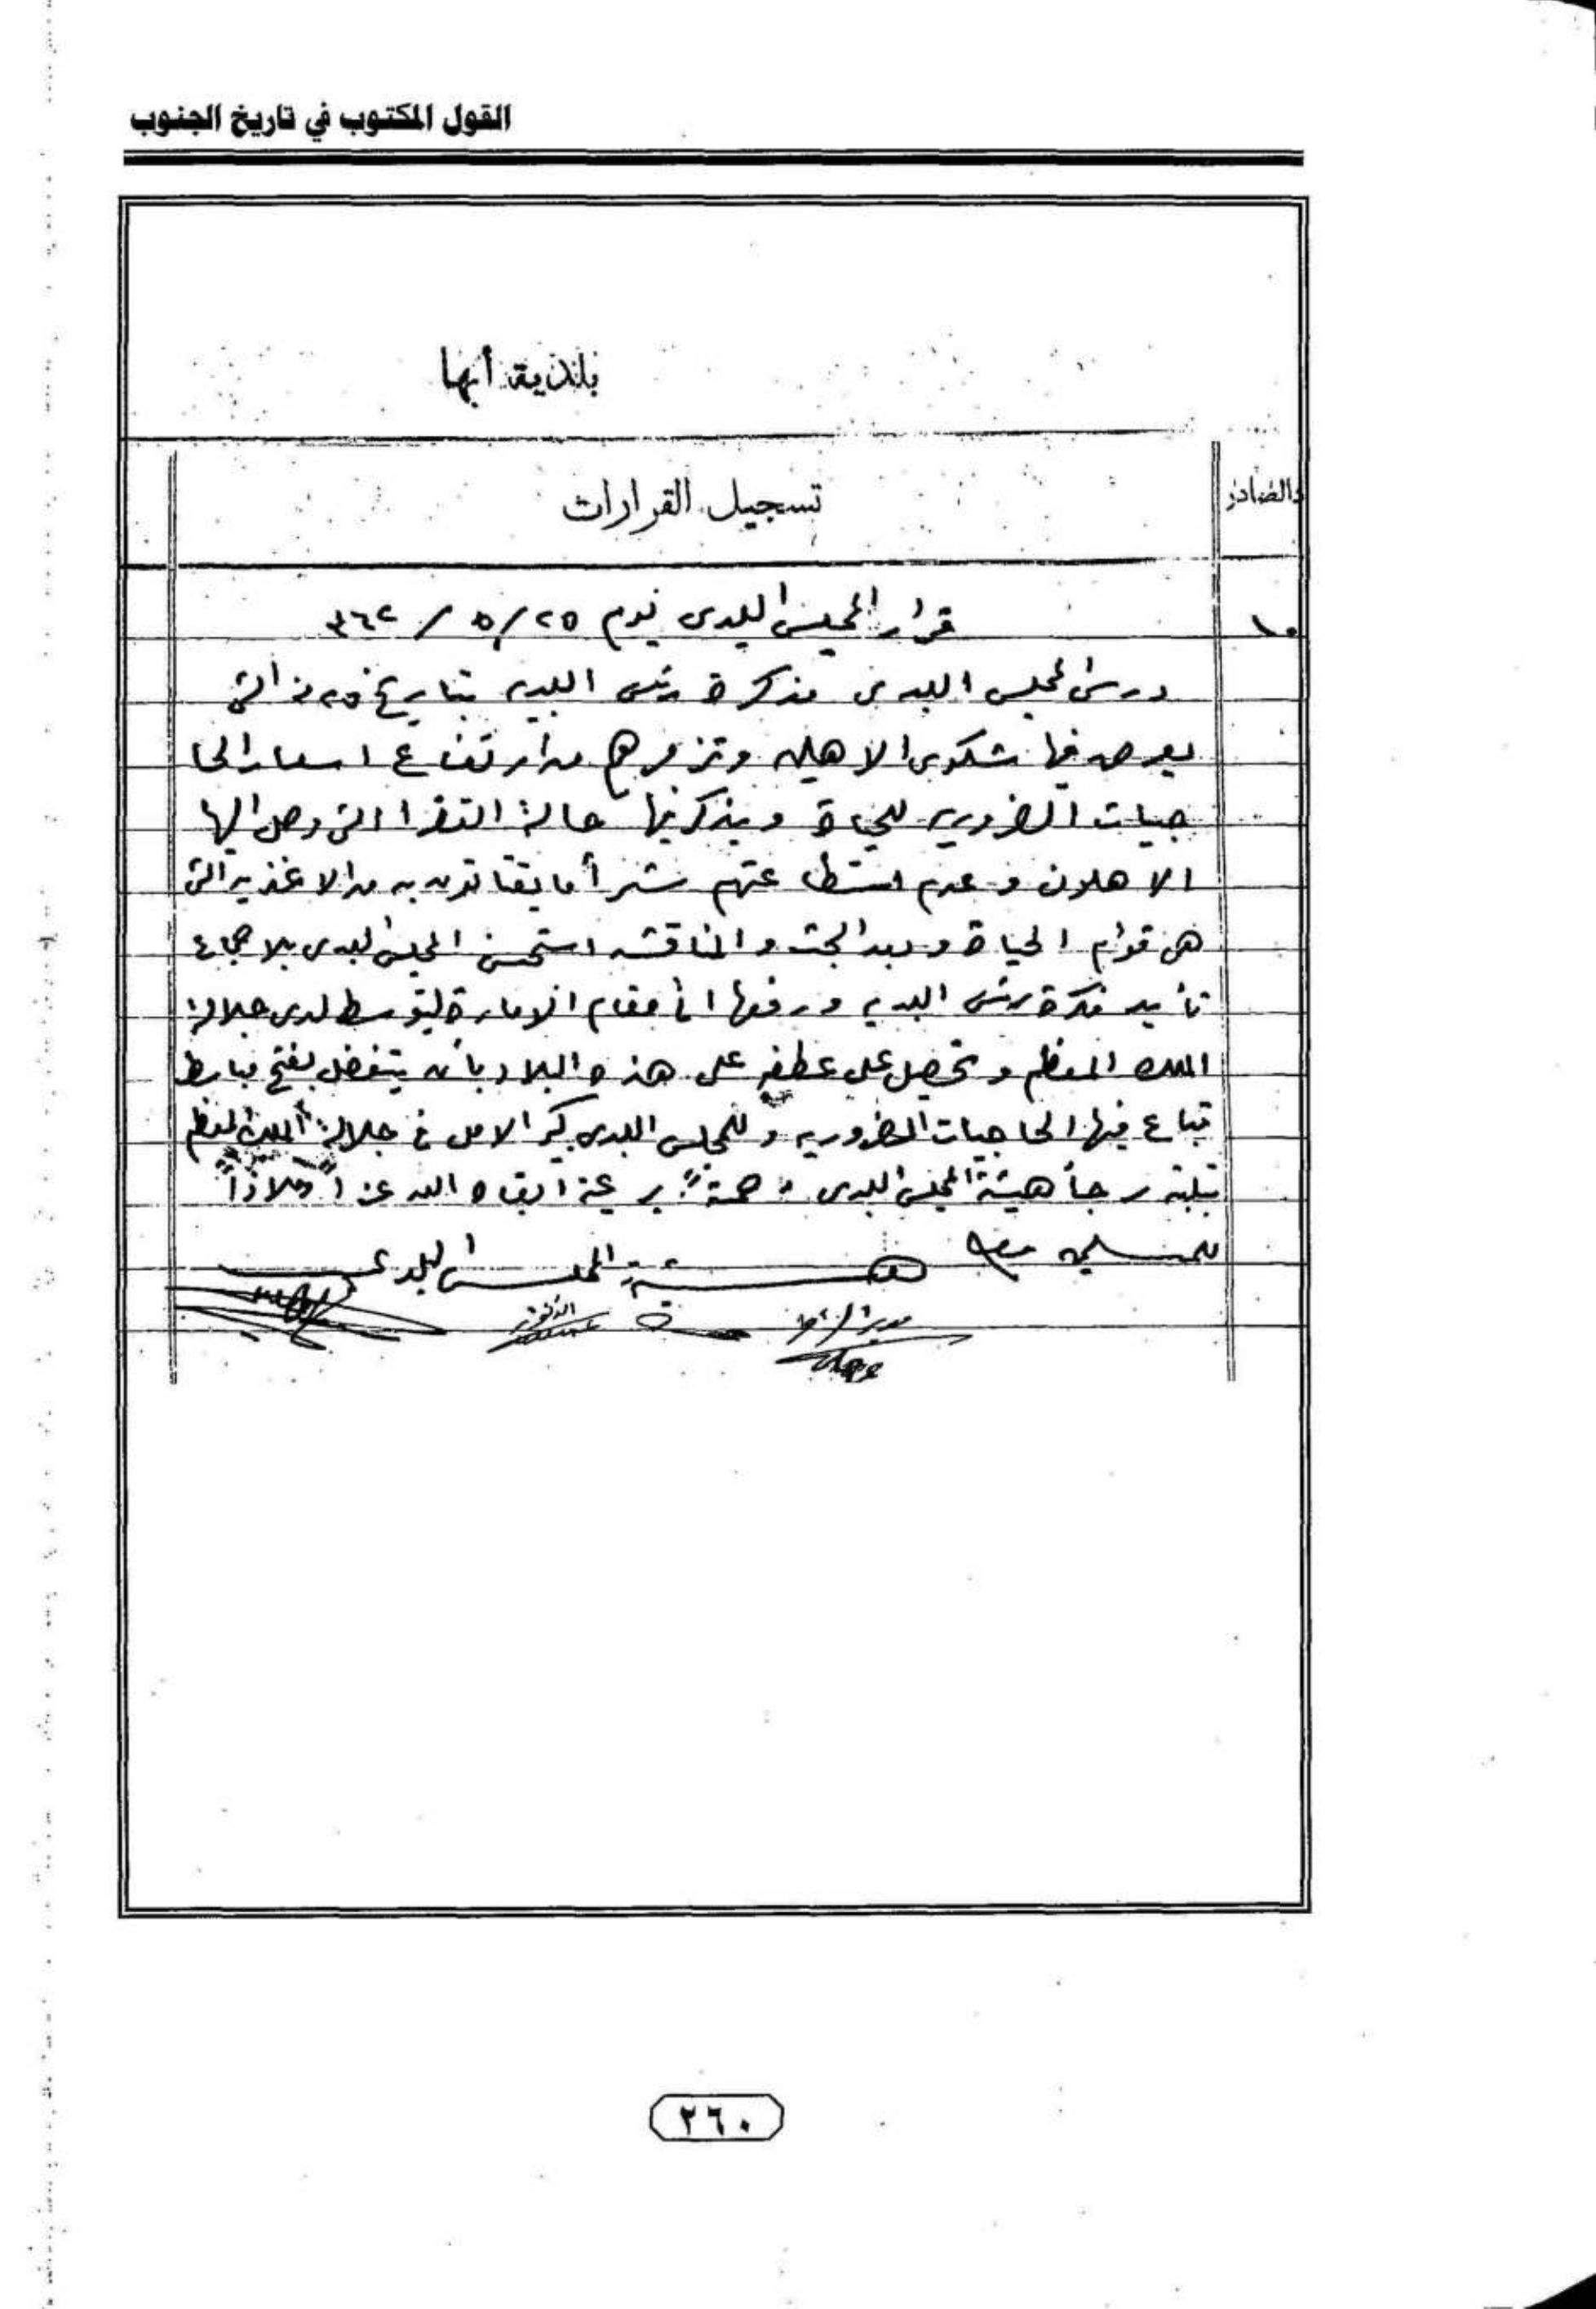 القول المكتوب في تاريخ الجنوب
بلدية أبها
والصادر
تسجيل القرارات
١٠
قرار المجلس البلدى يوم ٢٥/ ٥ / ٣٦٢
درس المجلس البلدى مذكرة رئيس البلديه بتاريخ التى
يعرض فيها شكوى الاهلين وتذمرهم من ارتفاع اسعار الحا
جيات الضروريه للحياة ويذكر فيها حالة الفقر التى وصل اليها
الاهلون وعدم استطاعتهم شرأ ما يقتاتون به من الاغذيه التى
هى قوام الحياة وبعد البحث والمناقشه استحسن المجلس البلدى بالاجماع
تأييد فكرة رئيس البلديه ورفعها الى مقام الامارة ليتوسط لدى جلالة
الملك المعظم وتحصل على عطفه على هذه البلاد بأن يتفضل بفتح
تباع فيها الحاجيات الضروريه وللمجلس البلدى كبير الامل فى جلالة الملك المعظم
تلبية رجأ هيئة المجلس البلدى ابقاه الله عزاً وملاذاً
للمسلمين
هيئة المجلس البلدى
٢٦٠